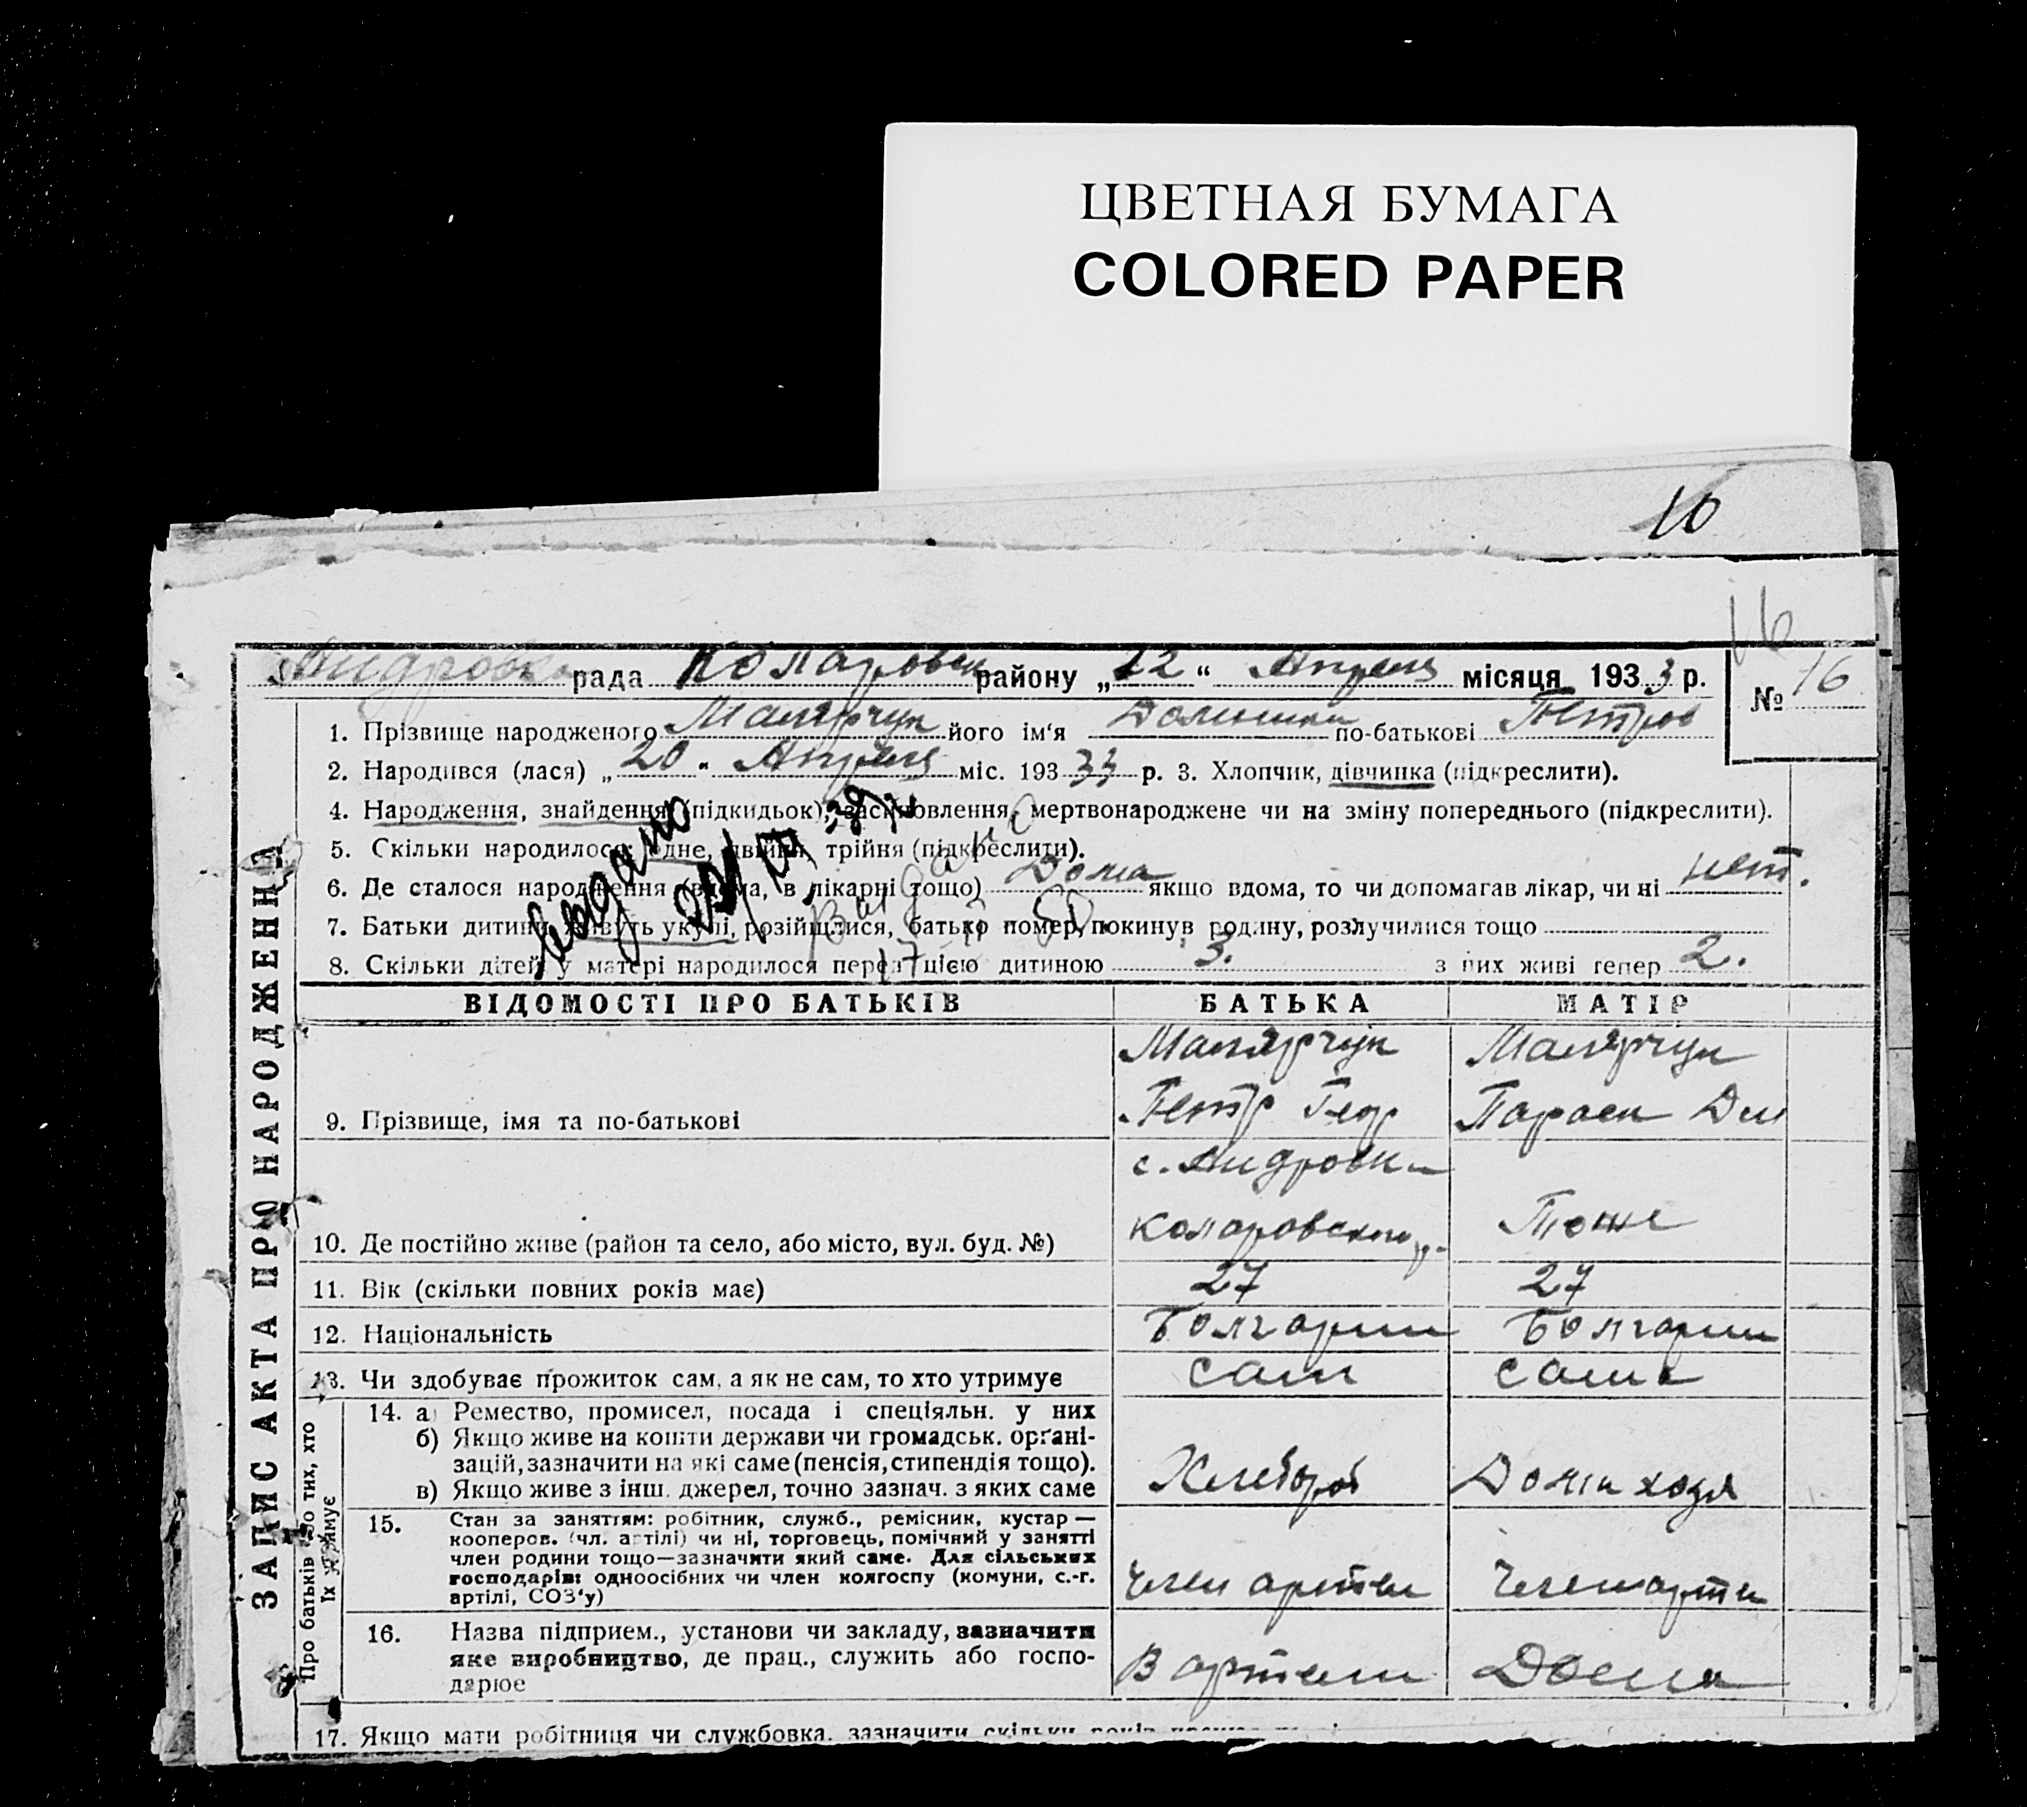 ЦВЕТНАЯ БУМАГА
COLORED PAPER
10
16
Андровка рада Коларовск району „22“ Апреля місяця 1933 р. № 16
1. Прізвище народженого Малярчук його ім'я по-батькові Петров
2. Народився (лася) „20“ Апреля міс. 193 33 р. 3. Хлопчик, дівчинка (підкреслити).
4. Народження, знайдення (підкидьок), встановлення, мертвонароджене чи на зміну попереднього (підкреслити).
5. Скільки народилося: одне, двійня, трійня (підкреслити).
6. Де сталося народження (вдома, в лікарні тощо) Дома якщо вдома, то чи допомагав лікар, чи ні нет.
7. Батьки дитини живуть укупі, розійшлися, батько помер, покинув родину, розлучилися тощо
8. Скільки дітей у матері народилося перед цією дитиною 3. з них живі тепер 2.
выдано
Выдано
ЗАПИС АКТА ПРО НАРОДЖЕННЯ
ВІДОМОСТІ ПРО БАТЬКІВ БАТЬКА МАТІР
Малярчук Малярчук
9. Прізвище, імя та по-батькові Петр Геор Параск
с. Андровка
10. Де постійно живе (район та село, або місто, вул. буд. №) Коларовского р. Тоже
11. Вік (скільки повних років має) 27 27
12. Національність Болгарин Болгарин
13. Чи здобуває прожиток сам, а як не сам, то хто утримує сам сама
Про батьків або тих, хто їх утримує
14. а) Ремество, промисел, посада і спеціяльн. у них
б) Якщо живе на кошти держави чи громадськ. органі-
зацій, зазначити на які саме (пенсія, стипендія тощо).
в) Якщо живе з інш. джерел, точно зазнач. з яких саме Хлебороб Дома хозя
15. Стан за заняттям: робітник, служб., ремісник, кустар —
кооперов. (чл. артілі) чи ні, торговець, помічний у занятті
член родини тощо—зазначити який саме. Для сільських
господарів: одноосібних чи член колгоспу (комуни, с.-г.
артілі, СОЗ'у) член артели член арте
16. Назва підприєм., установи чи закладу, зазначити
яке виробництво, де прац., служить або госпо-
дарює В артели Дома
17. Якщо мати робітниця чи службовка, зазначити скільки